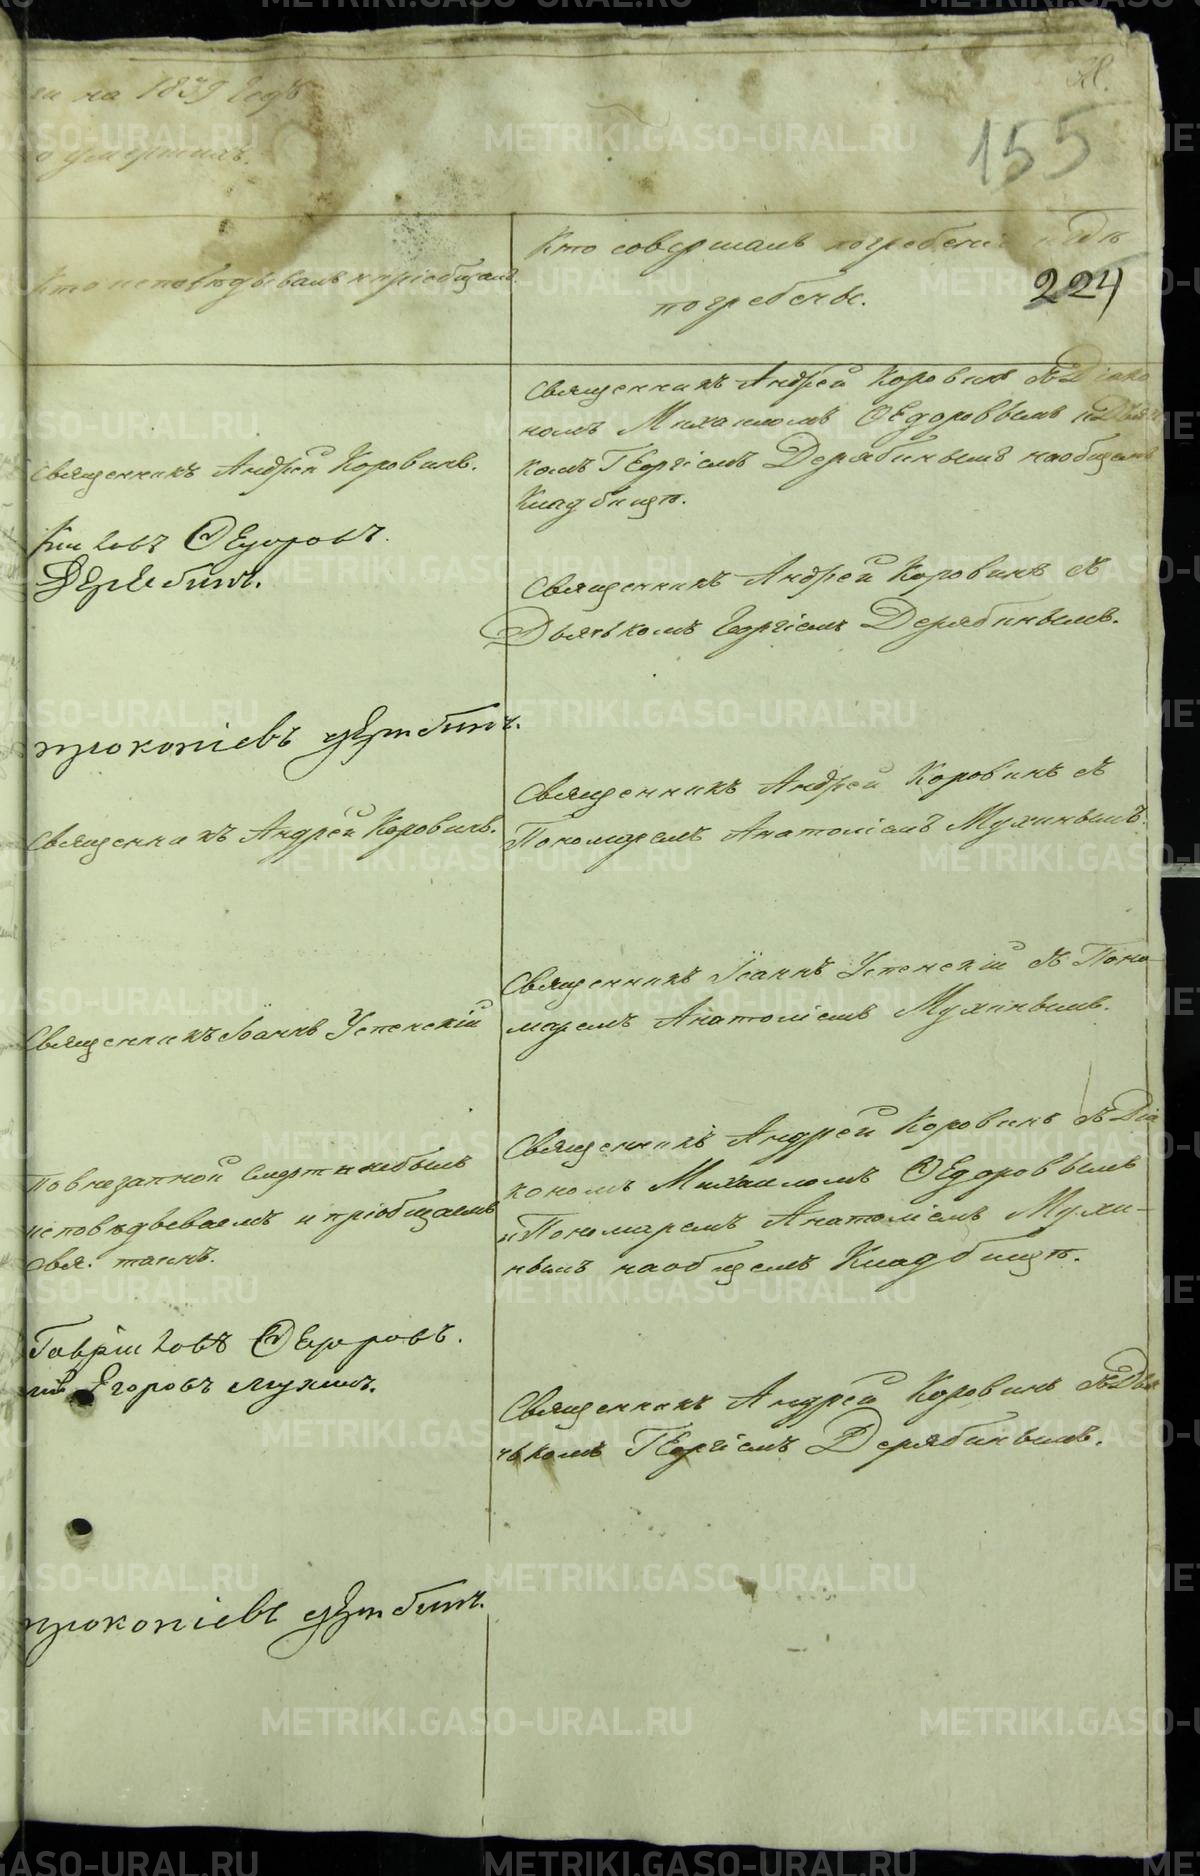 на 1839 Годъ
о умершихъ.
155
224
Кто исповѣдывалъ и пріобщалъ.
Кто совершалъ погребеніе и гдѣ
погребены.
Священникъ Андрей Коровинъ.
Священникъ Андрей Коровинъ съ Діако
номъ Михаиломъ Ѳедоровымъ и Дьяч
комъ Георгіемъ Дерябинымъ на общемъ
Кладбищѣ.
Ѳедоровъ.
Дерябинъ.
Священникъ Андрей Коровинъ съ
Дьячькомъ Георгіемъ Дерябинымъ.
прокопіевъ дерябинъ.
Священникъ Андрей Коровинъ.
Священникъ Андрей Коровинъ съ
Пономаремъ Анатоліемъ Мухинымъ.
Священникъ Іоаннъ Успенскій
Священникъ Іоаннъ Успенскій съ Поно
маремъ Анатоліемъ Мухинымъ.
По внезапной смерти небылъ
исповѣдываемъ и пріобщаемъ
свя. таинъ.
Священникъ Андрей Коровинъ съ Діа
кономъ Михаиломъ Ѳедоровымъ
и Пономаремъ Анатоліемъ Мухи-
нымъ на общемъ Кладбищѣ.
Гавріиловъ Ѳедоровъ.
Егоровъ мухинъ.
Священникъ Андрей Коровинъ съ Дья
чькомъ Георгіемъ Дерябинымъ.
прокопіевъ дерябинъ.
METRIKI.GASO-URAL.RU